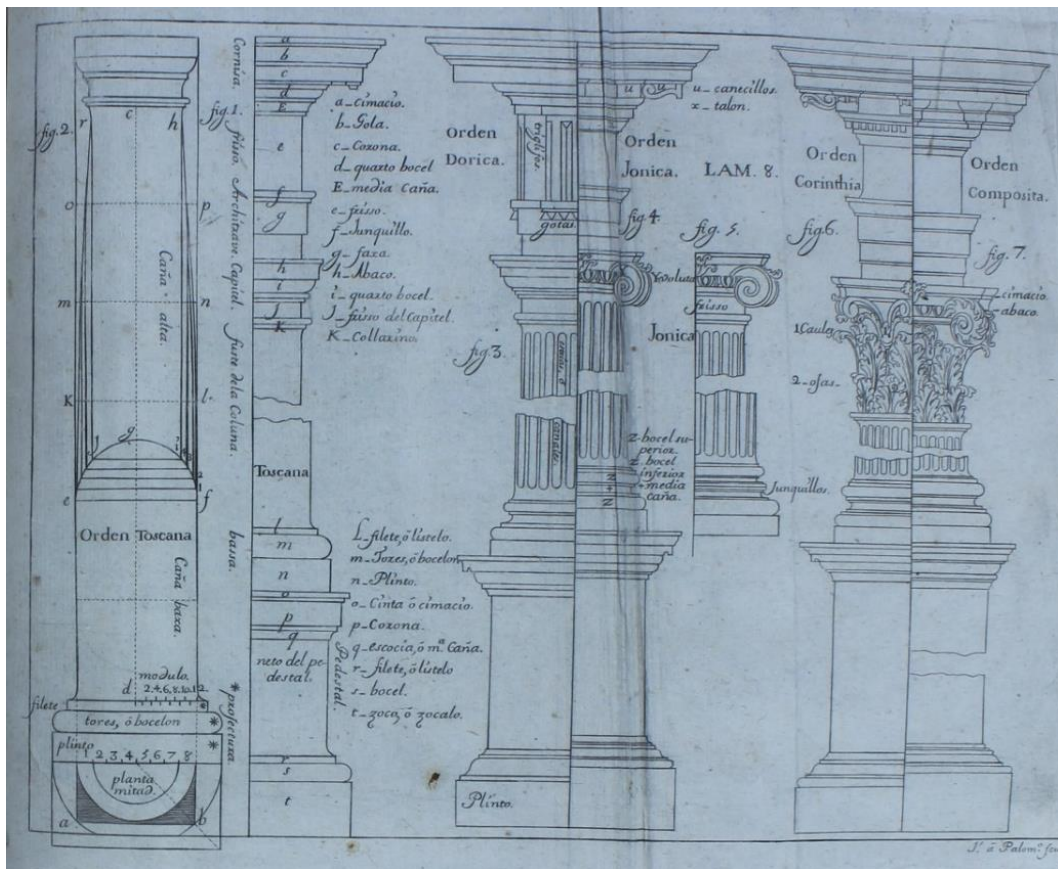 fig. 2.
r
c
h
o
p
m
n
K
l.
g
i
e
f
Caña alta.
Orden Toscana
Caña baxa.
modulo.
d
2.4.6.8.10.12.
filete
tores, ó bocelon
*
plinto
*
1 2 3 4 5 6 7 8
planta
mitad.
a
b
fig. 1.
Cornisa. frisso. Architrave. Capitel. fuste de la Coluna. bassa.
* profectura.
a
b
c
d
E
e
f
g
h
i
J
K
Toscana
l
m
n
o
p
q
neto del pe-
destal.
Pedestal.
r
s
t
a_cimacio.
b_Gola.
c_Corona.
d_quarto bocel
E_media Caña.
e_frisso
f_Junquillo.
g_faxa.
h_Abaco.
i_quarto bocel.
J_frisso del Capitel.
K_Collarino.
L_filete, ó listelo.
m_Tores, ó bocelon
n_Plinto.
o_Cinta ó cimacio.
p_Corona.
q_escocia, ó m.ª Caña.
r_filete, ó listelo
s_bocel.
t_zoco, ó zocalo.
Orden
Dorica.
triglifos.
gotas
fig. 3.
canales.
Plinto.
u
u
u_canecillos.
x_talon.
Orden
Jonica.
LAM. 8.
fig. 4.
fig. 5.
voluta
frisso
Jonica
z-bocel su-
perior.
z.bocel
inferior
media
caña.
Junquillos.
Orden
Corinthia
Orden
Composita.
fig. 6.
fig. 7.
cimacio
abaco.
1 Caules
2_ojas_